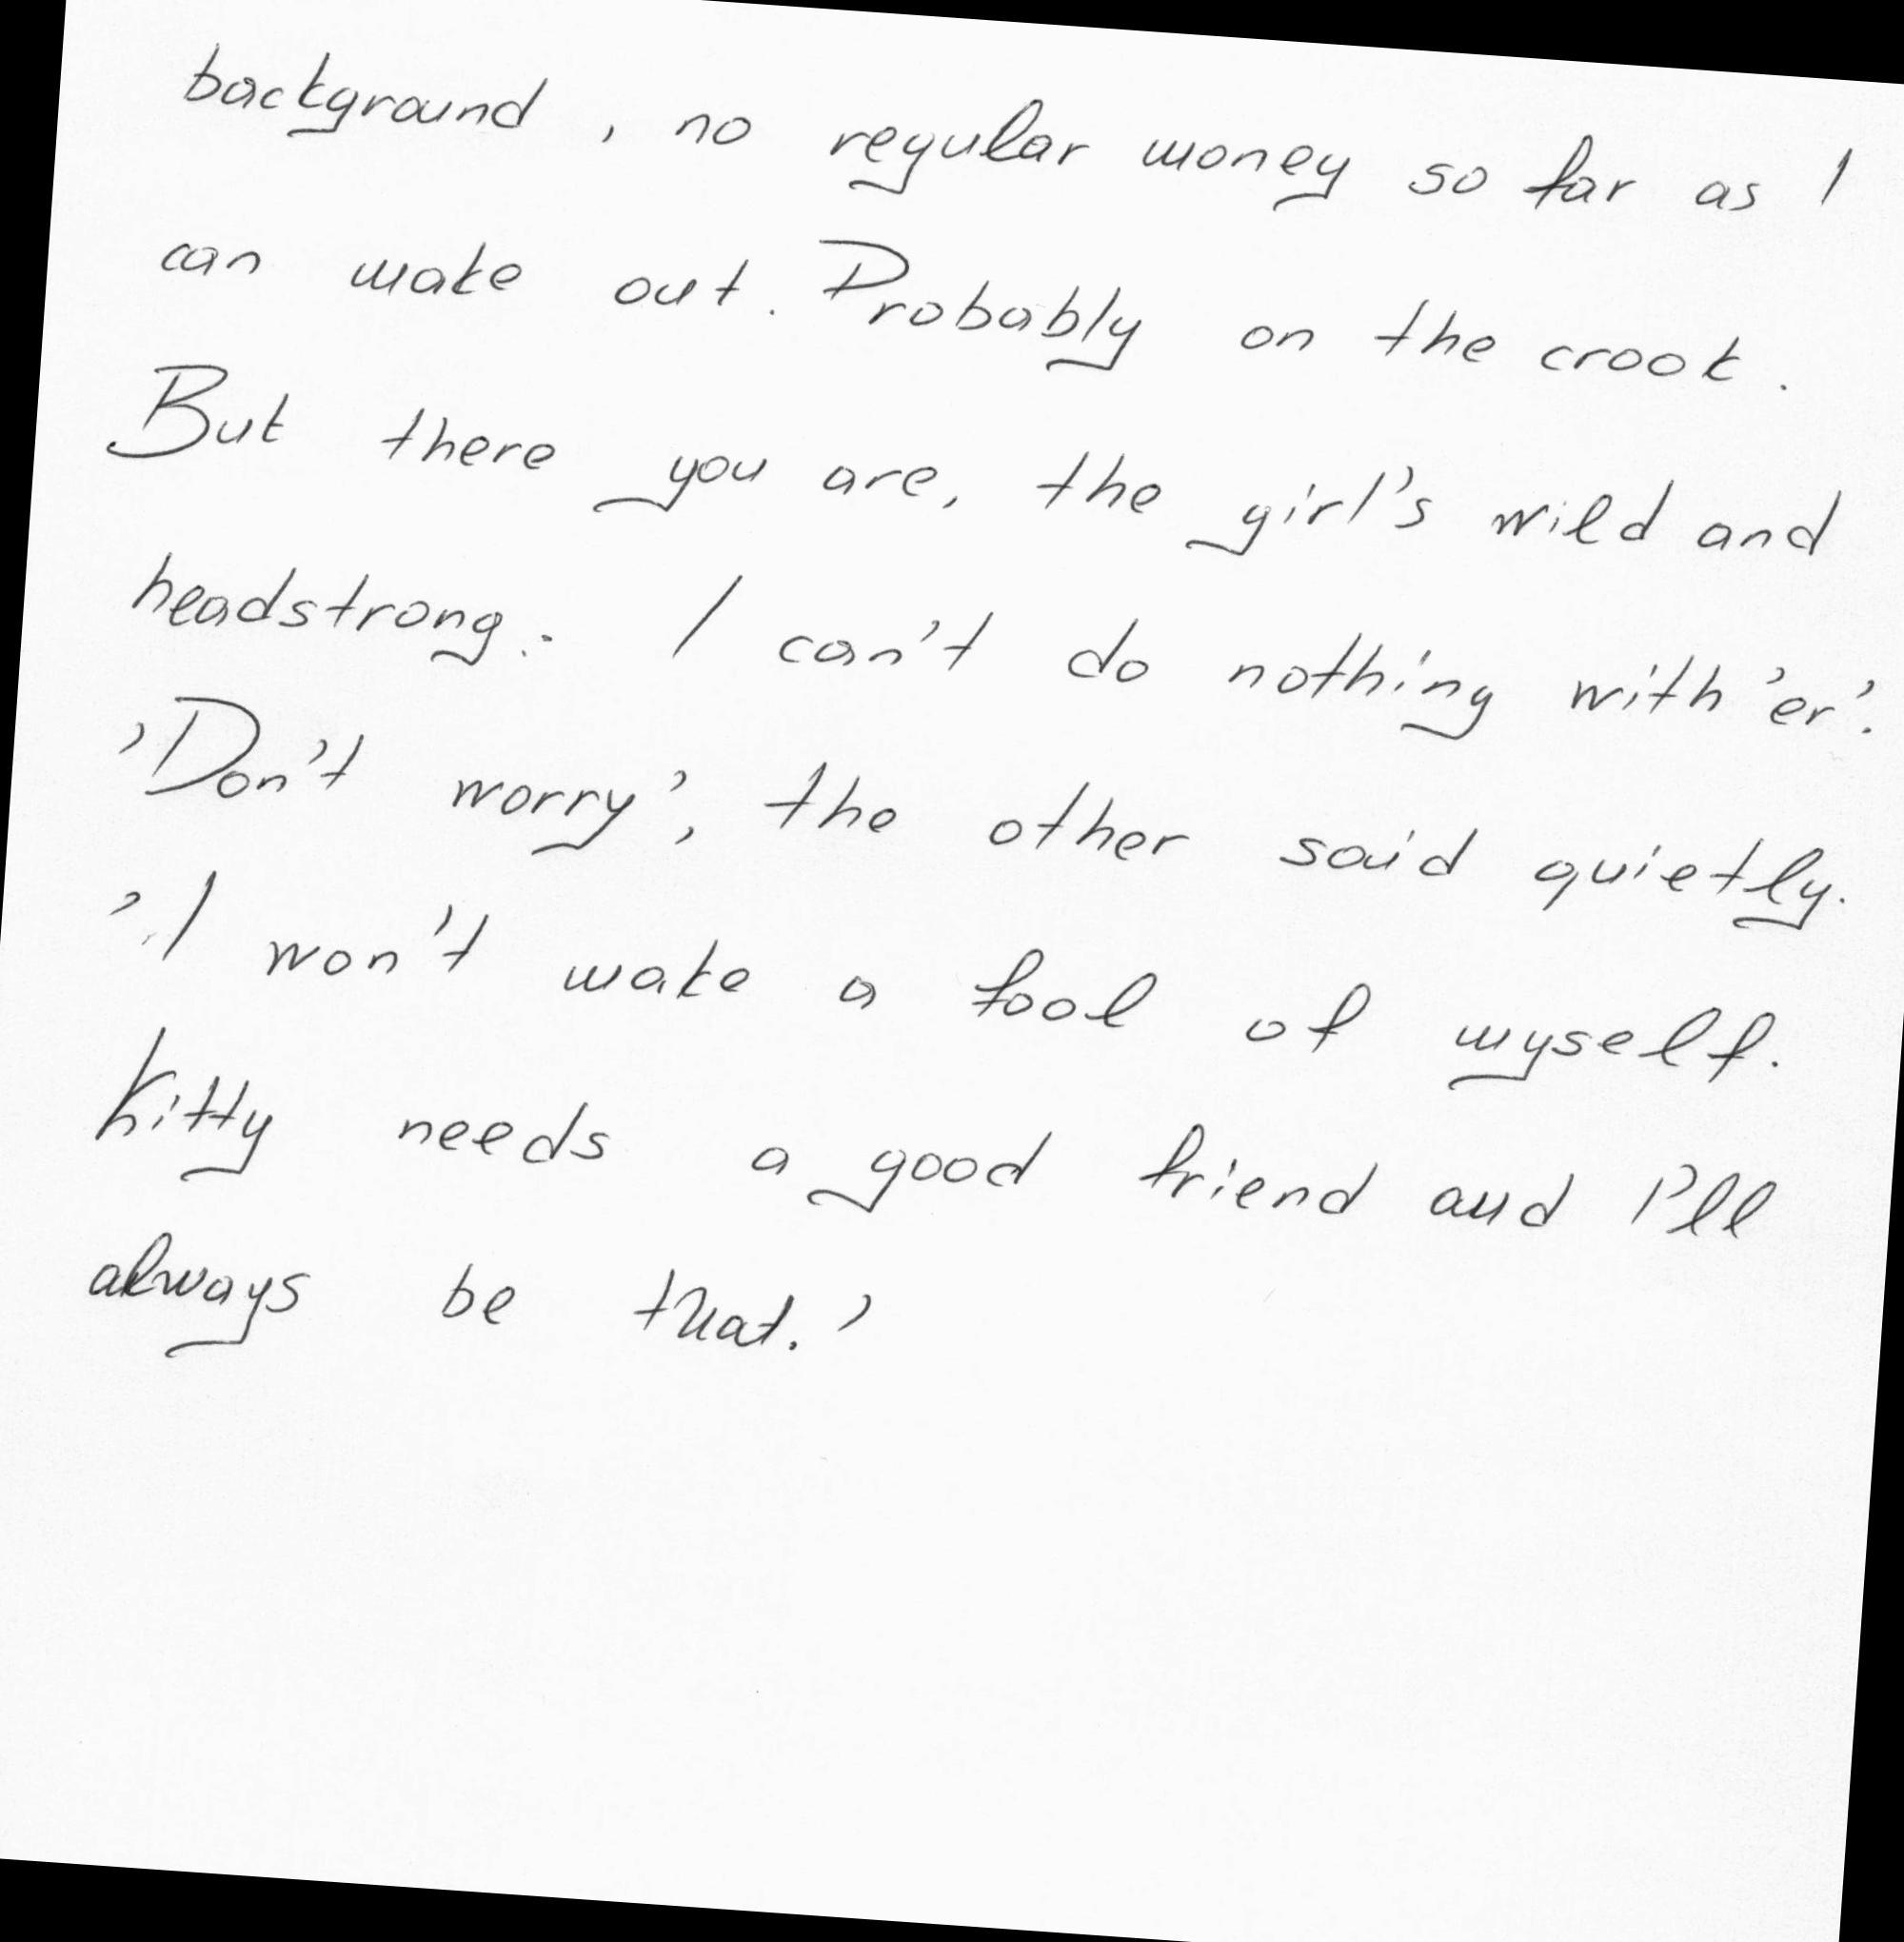 background, no regular money so far as I
can make out. Probably on the crook.
But there you are, the girl's wild and
headstrong. I can't do nothing with 'er'.
'Don't worry', the other said quietly.
'I won't make a fool of myself.
Kitty needs a good friend and I'll
always be that.'